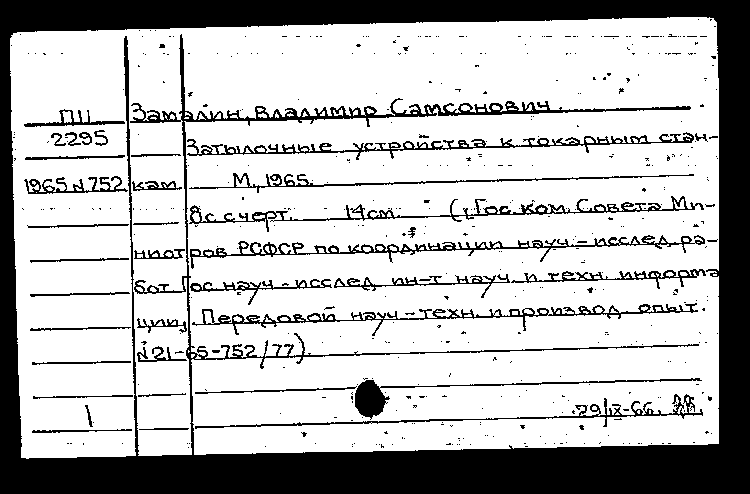 ПII Замалин, Владимир Самсонович.
2295 Затылочные устройства к токарным стан-
1965 N752 кам. М., 1965.
8с с черт. 14см. („Гос. ком. Совета Ми-
нистров РСФСР по координации науч.-исслед. ра-
бот Гос науч.-исслед. ин-т науч. и техн. информа
ции„. Передовой науч.-техн. и производ. опыт.
N21-65-752/77).
29/IX-66.